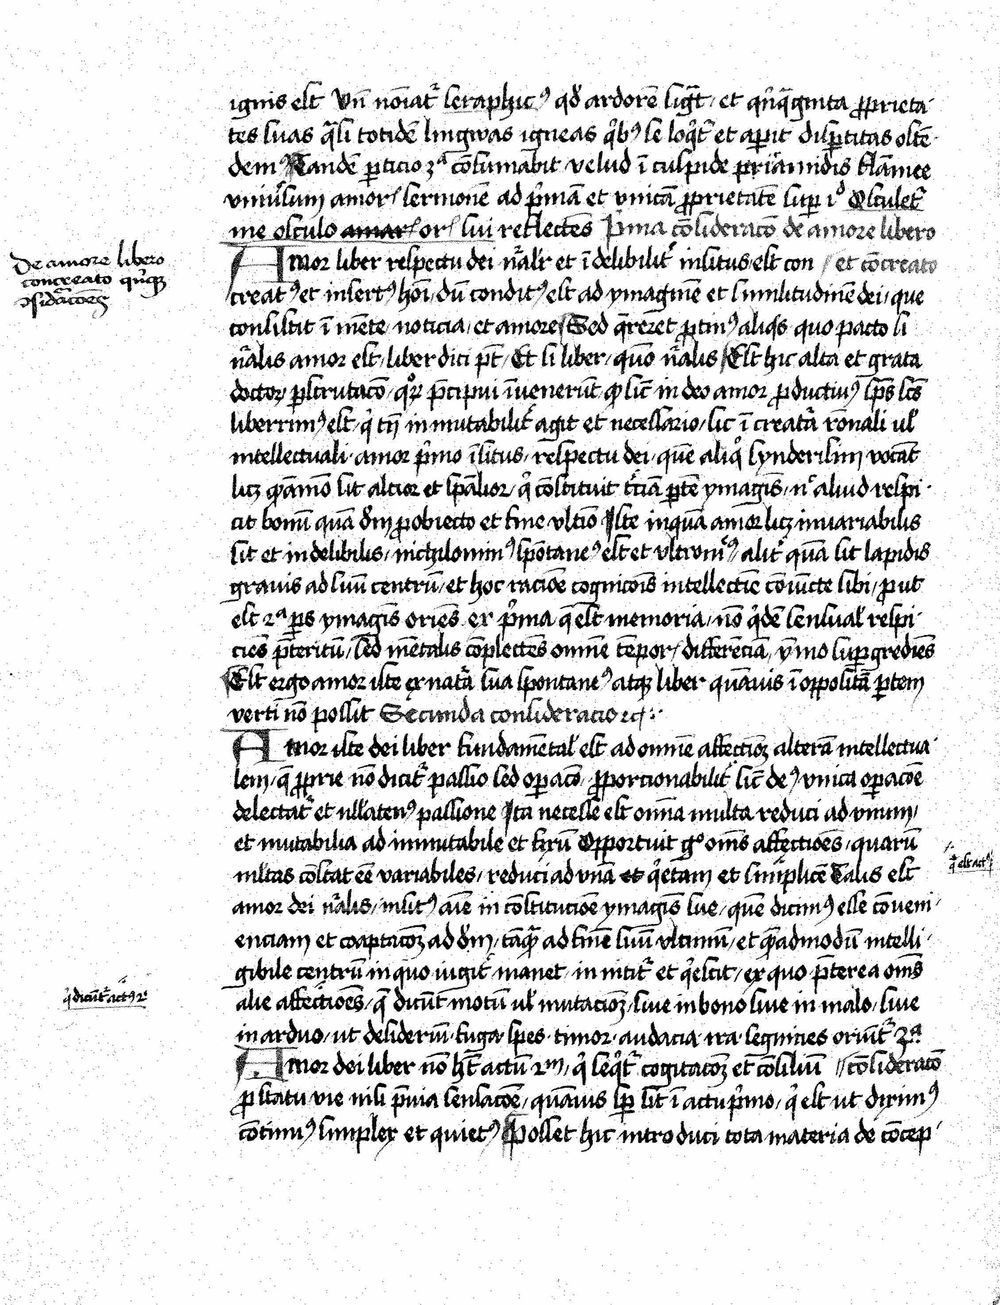 ignis est Vñ noīatᷣ seraphicꝰ qd̕ ardorē sigᵗ / et qⁿq̄ginta ꝓprieta-
tes suas q̄si totidē lingwas igneas qⁱbꝰ se loqⁱtᷣ et aꝑit disꝑtitas ostē-
dem Tandē ꝑticio 3ᵃ cōsumabit velud ī cuspide piramidis flamee
vniuˢsum amorꝭ sermonē ad pⁱmā et vnicā ꝓprietatē suꝑ iᵒ Osculetᷣ
me osculo amarꝭ orꝭ sui reflectēs Pⁱma cōsideracō de amore libero
De amore libero
concreato quīqꝫ
ꝯsidacōes
Amor liber respectu dei nᵃlit᷑ et īdelibilit᷑ insitus est con / et cōcreato
creatꝰ et insertꝰ hoī / dū conditꝰ est ad ymaginē et similitudinē dei / que
consistit ī mēte / noticia / et amore Sed q̄reret ꝓtinꝰ aliqⁱs quo pacto si
nᵃlis amor est / liber dici pᵗ / Et si liber / quō nᵃlis Est hic alta et grata
doctoꝝ ꝑscrutacō / qᵒꝝ p̄cipui īuenerūt ꝙ sic̄ in deo amor ꝓductiuꝰ sp̄s sc̄s
liberrimꝰ est / qⁱ tn̄ inmutabilit᷑ agit et necessario / sic ī creatᵃ rōnali ul̕
intellectuali / amor pⁱmo īsitus / respectu dei / quē aliqⁱ synderisim vocāt
licꝫ q̄ īmo sit altior et sp̄alior / qⁱ cōstituit tⁱciā ꝑtē ymagīs / nᶜ aliud respi-
cit bonū quā dm̄ ꝓ obiecto et fine vltīo Iste inquā amor licꝫ inuariabilis
sit et indelibilis / nichilominꝰ spōtaneꝰ est et vltroneꝰ / alit᷑ quā sit lapidis
grauis ad suū centrū / et hoc racīoe cognicōis intellectiē cōiuncte sibi / ꝓut
est 2ᵃ ꝑs ymagīs oriēs ex pⁱma q̄ est memoria / nō qⁱdē sensual̕ respi-
ciēs p̄teritū / sed mētalis cōplectēs omnē tēporꝭ differēciā / ymo suꝑgrediēs
Est ergo amor iste ex natᵃ sua spontaneꝰ atqꝫ liber quāuis ī opposita ꝑtem
verti nō possit Secunda consideracio
Amor iste dei liber fundamētal̕ est ad omnē affectiōꝫ alterā intellectua-
lem / q̄ ꝓprie nō dicitᷣ passio sed oꝑacō / ꝓporcionabilit᷑ sic̄ deꝰ vnica oꝑacōe
delectatᷣ et nullatenꝰ passione Ita necesse est omīa multa reduci ad vnum /
et mutabilia ad inmutabile et fixū Opportuit gᵒ om̄s affectiōes / quarū
ml̕tas cōstat eē variabiles / reduci ad vnā et qⁱetam et simplicē Talis est
amor dei nᵃlis / insitꝰ aīe in cōstitucōe ymagīs sue / quē dicimꝰ esse cōueni-
enciam et coaptacōꝫ ad dm̄ / tāqᵃ ad finē suū vltimū / et q̄admodū intelli-
gibile centrū in quo iugit᷑ manet / in nititᷣ et qⁱescit / ex quo p̄terea om̄s
qⁱ dicūtᷣ actꝰ 2ⁱ
alie affectiōes / q̄ dicūt motū ul̕ mutaciōꝫ / siue in bono siue in malo / siue
in arduo / ut desideriū / fuga / spes / timor / audacia / ira / segnicies oriūtᷣ 3ᵃ
Amor dei liber nō hᵗ actū 2ᵐ / qⁱ seqⁱtᷣ cogitacōꝫ et cōsiliū // cōsideracō
ꝓ statu vie nisi p̄uia sensacōe / quāuis sꝑ sit ī actu pⁱmo / qⁱ est ut diximꝰ
cōtinuꝰ simplex et quietꝰ Posset hic introduci tota materia de cōcep-